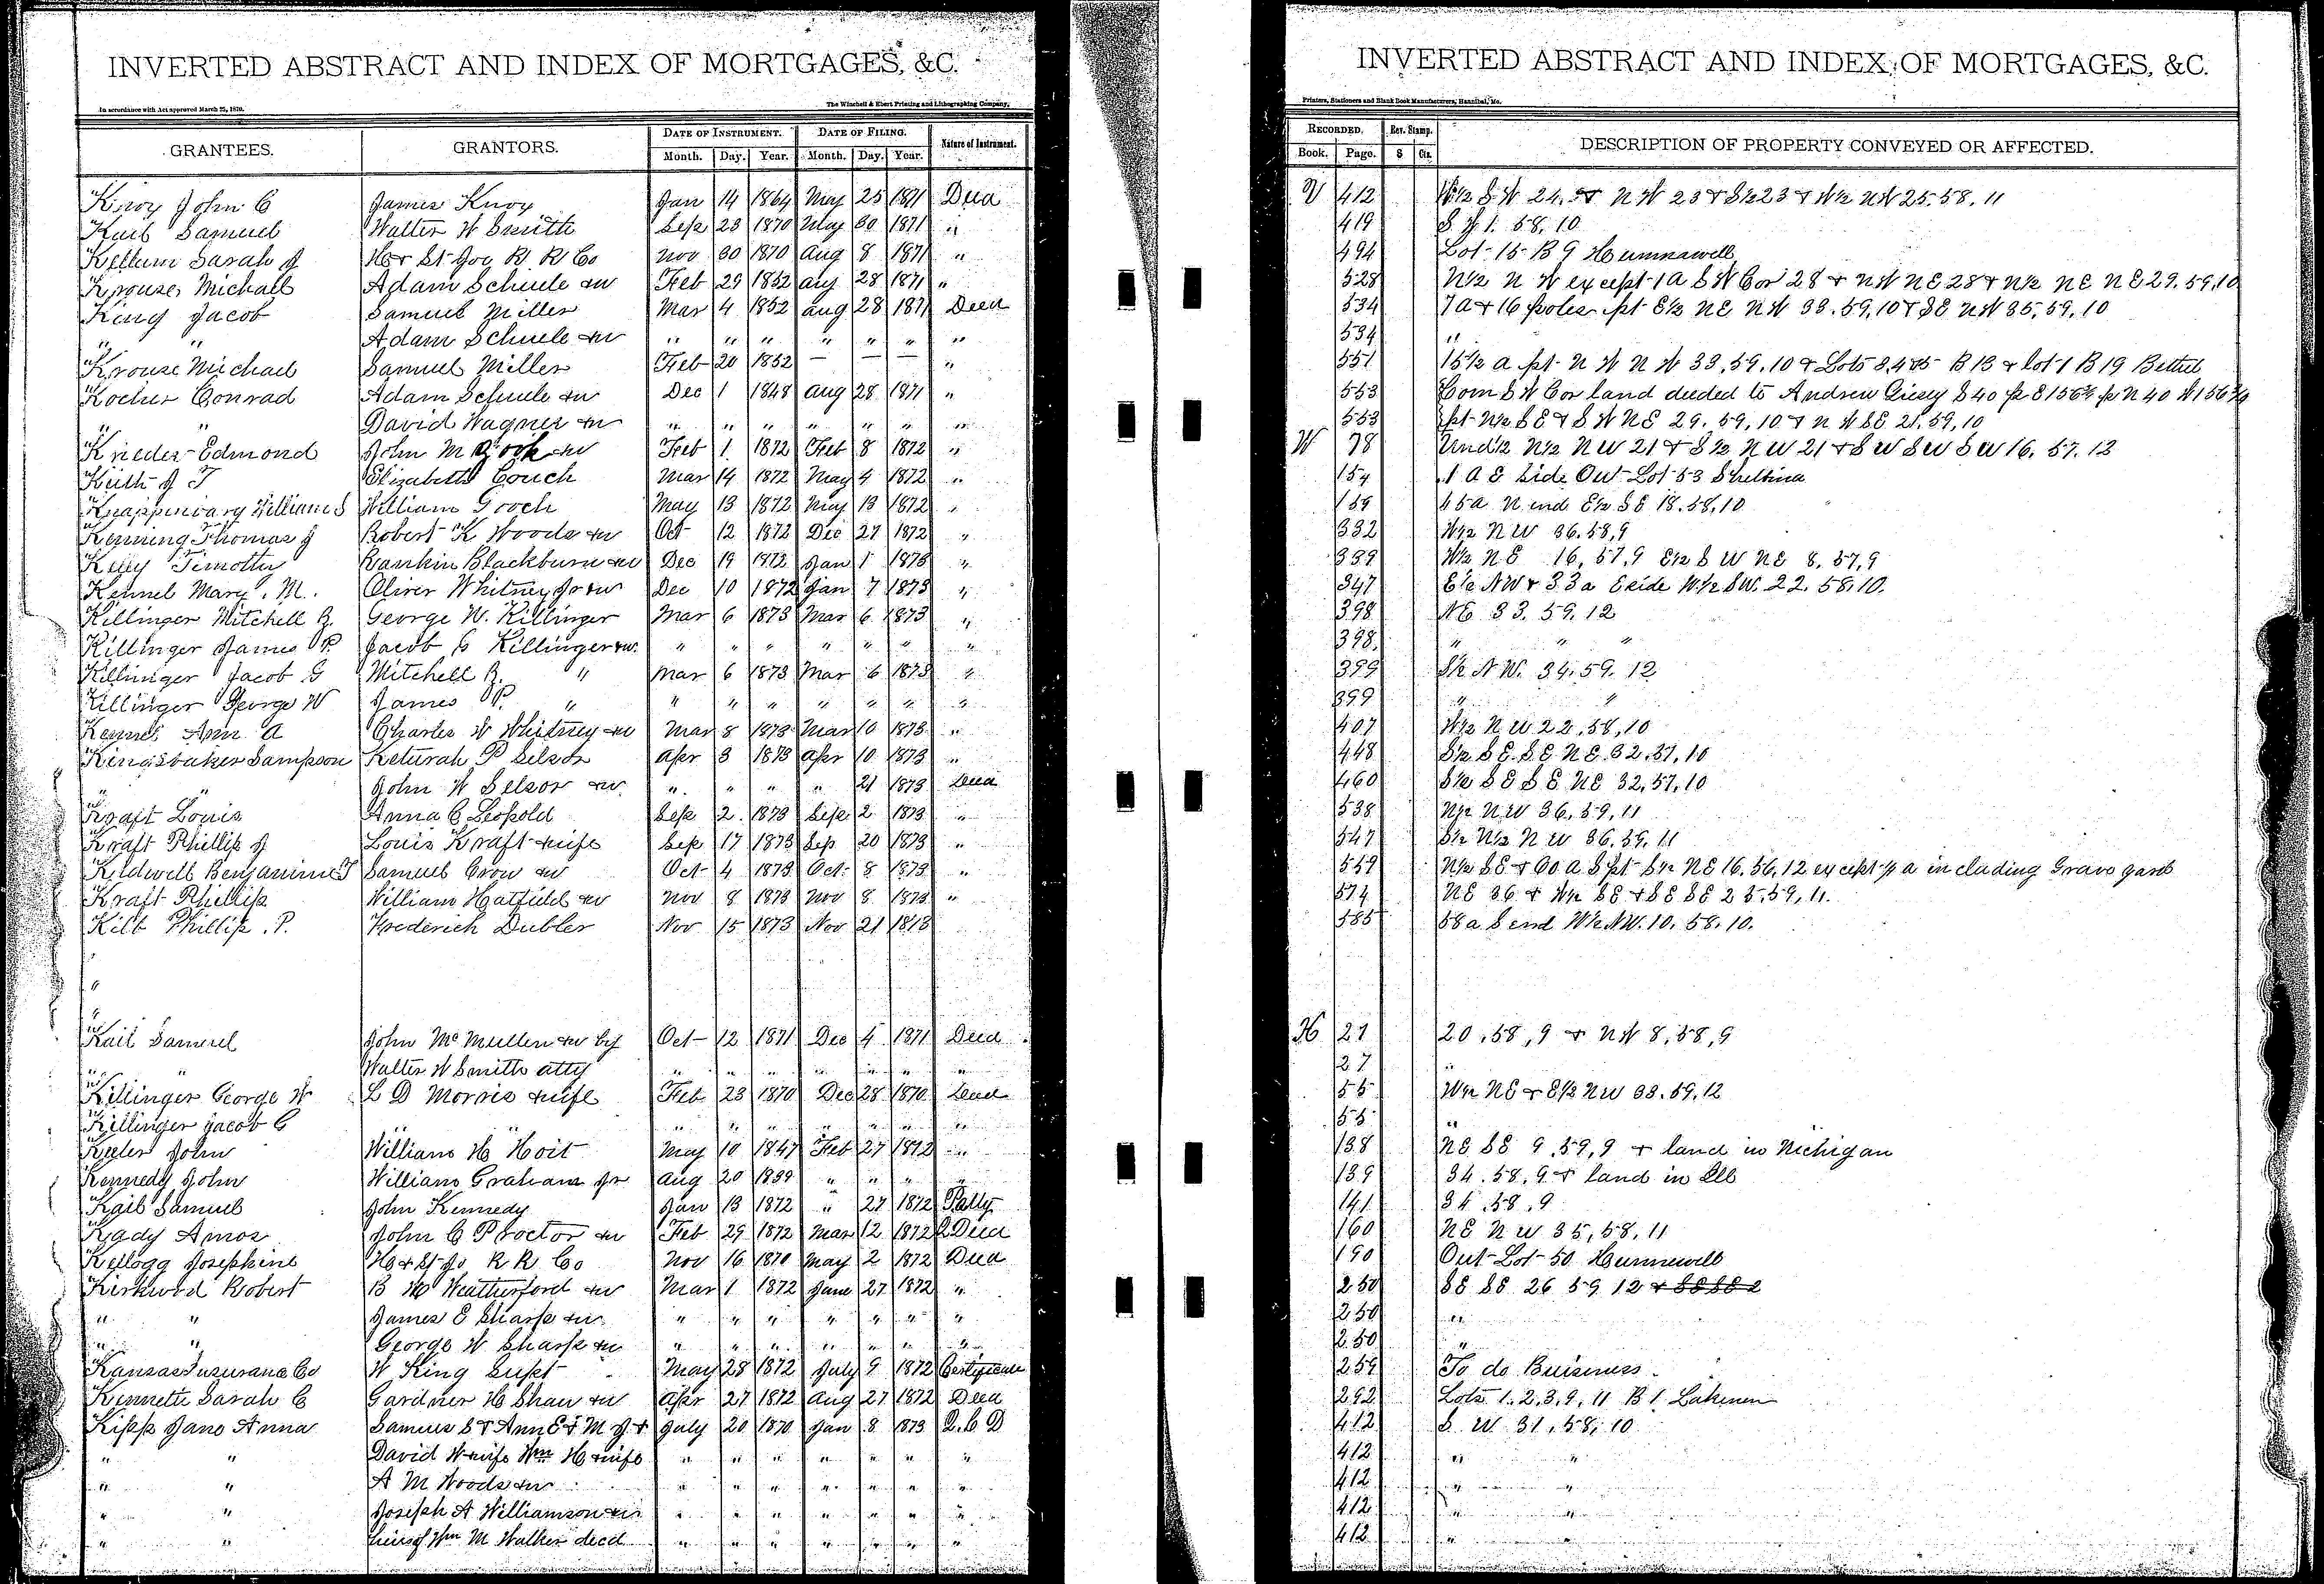 INVERTED ABSTRACT AND INDEX OF MORTGAGES, &C.
In accordance with Act approved March 25, 1870. The Winchell & Ebert Printing and Lithographing Company,
GRANTEES. GRANTORS. DATE OF INSTRUMENT. DATE OF FILING. Nature of Instrument.
Month. Day. Year. Month. Day. Year.
Knoy John C James Knoy Jan 14 1864 May 25 1871 Deed
Kail Samuel Walter W Smith Sep 23 1870 May 30 1871 "
Kellum Sarah J H & St Joe R R Co Nov 30 1870 Aug 8 1871 "
Krouse Michael Adam Schuele &w Feb 29 1852 Aug 28 1871 "
King Jacob Samuel Miller Mar 4 1852 Aug 28 1871 Deed
" " Adam Schuele &w " " " " " " "
Krouse Michael Samuel Miller Feb 20 1852 — — — "
Kocher Conrad Adam Schuele &w Dec 1 1848 Aug 28 1871 "
" " David Wagner &w " " " " " " "
Krieder Edmond John M Gooch &w Feb 1 1872 Feb 8 1872 "
Keith J T Elizabeth Couch Mar 14 1872 May 4 1872 "
William Gooch May 13 1872 May 13 1872 "
Kenning Thomas J Robert K Woods &w Oct 12 1872 Dec 27 1872 "
Timothy Rankin Blackburn &w Dec 19 1872 Jan 1 1873 "
Kennel Mary M. Oliver Whitney Jr &w Dec 10 1872 Jan 7 1873 "
Killinger Mitchell R. George W. Killinger Mar 6 1873 Mar 6 1873 "
Killinger James P Jacob G Killinger &w. " " " " " " "
Killinger Jacob G Mitchell R. " Mar 6 1873 Mar 6 1873 "
Killinger George W James P. " " " " " " " "
Kennel Ann A Charles W Whitney &w Mar 8 1873 Mar 10 1873 "
Kingsbaker Sampson Keturah P Selsor Apr 3 1873 Apr 10 1873 "
" " John W Selsor &w " " " " 21 1873 Deed
Kraft Louis Anna C Leopold Sep 2 1873 Sep 2 1873 "
Kraft Phillip J Louis Kraft &wife Sep 17 1873 Sep 20 1873 "
Kildwell Benjamin T Samuel Crow &w Oct 4 1873 Oct 8 1873 "
Kraft Phillip William Hatfield &w Nov 8 1873 Nov 8 1873 "
Kilb Phillip P. Frederich Dubler Nov 15 1873 Nov 21 1873
Kail Samuel John McMullen &w by Oct 12 1871 Dec 4 1871 Deed
" " Walter W Smith atty " " " " " " "
Killinger George W L D Morris &wife Feb 23 1870 Dec 28 1870 Deed
Killinger Jacob G " " " " " " " "
Keeler John William H Hoit May 10 1847 Feb 27 1872 "
Kennedy John William Graham Jr Aug 20 " " " "
Kail Samuel John Kennedy Jan 13 1872 " 27 1872 P atty
Kady Amos John C Proctor &w Feb 29 1872 Mar 12 1872 Deed
Kellogg Josephine H & St Jo R R Co Nov 16 1870 May 2 1872 Deed
Kirkwood Robert B W Weatherford &w Mar 1 1872 June 27 1872 "
" " James E Sharp &w " " " " " " "
" " George W Sharp &w " " " " " " "
Kansas Insurance Co W King Supt May 28 1872 July 9 1872 Certificate
Kennett Sarah C Gardner H Shaw &w Apr 27 1872 Aug 27 1872 Deed
Kipp Jane Anna Samuel S & Ann E & M J & July 20 1870 Jan 8 1873 Q. C D
" " David W &wife Wm H &wife " " " " " " "
" " A M Woods &w " " " " " " "
" " Joseph A Williamson &w " " " " " " "
" " heirs of Wm M Walker decd " " " " " " "
INVERTED ABSTRACT AND INDEX OF MORTGAGES, &C.
Printers, Stationers and Blank Book Manufacturers, Hannibal, Mo.
RECORDED. Rev. Stamp. DESCRIPTION OF PROPERTY CONVEYED OR AFFECTED.
Book. Page. $ Cts.
V 412 W½ S W 24. & N W 23 & S½ 23 & W½ NW 25. 58. 11
419 S ½ 1. 58, 10
494 Lot 15 B 9 Hunnewell
528 N½ N W except 1 a S W Cor 28 & NW NE 28 & N½ NE NE 29. 59, 10
534 7 a & 16 poles pt E½ NE NW 33. 59, 10 & SE NW 35, 59, 10
534 "
551 15½ a pt N W N W 33, 59, 10 & Lots 3, 4 & 5 B 13 & lot 1 B 19 Bethel
553 Com S W Cor land deeded to Andrew Giesy S 40 p E 156¾ p N 40 W 156¾
553 pt N½ SE & S W NE 29. 59, 10 & N W SE 21. 59, 10
W 78 Und½ N½ N W 21 & S½ N W 21 & S W S W S W 16. 57. 12
154 1 A E side Out Lot 53 Shelbina
159 45 a N end E½ SE 18. 58, 10
332 W½ N W 36. 58, 9
339 W½ NE 16, 57, 9 E½ S W NE 8, 57, 9
347 E½ NW & 33 a E side W½ SW. 22. 58, 10.
398 NE 33. 59, 12
398 " " "
399 S½ N W. 34, 59. 12
399 " "
407 W½ N W 22, 58, 10
448 S½ SE. SE NE. 32. 57, 10
460 S½ SE SE NE 32, 57, 10
538 N½ N W 36, 59, 11
547 S½ N½ N W 36. 59, 11
559 N½ SE & 60 a S pt S½ NE 16. 56, 12 except ½ a including Grave yard
574 NE 36 & W½ SE & SE SE 25. 59, 11.
585 58 a S end W½ NW. 10. 58. 10.
27 20, 58, 9 & NW 8, 58, 9
27 "
55 W½ NE & E½ NW 33. 59, 12
55 "
138 NE SE 9, 59, 9 & land in Michigan
139 34. 58, 9 & land in Ill
141 34. 58, 9
160 NE N W 35, 58, 11
190 Out Lot 50 Hunnewell
250 SE SE 26 59 12 & SE SE 2
250 "
250 "
259 To do Buisiness
292 Lots 1. 2. 3, 9, 11 B 1. Lakenan
412 S. W 31, 58, 10
412 " "
412 " "
412 " "
412 " "